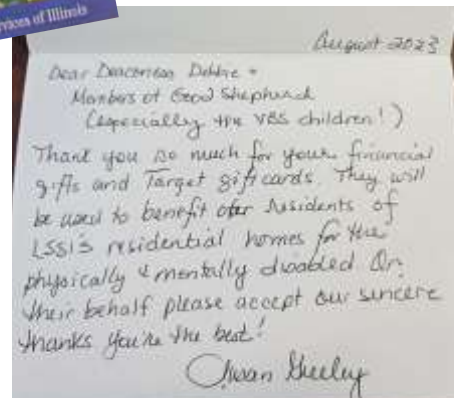 rvices of Illinois
August 2023
Dear Deaconess Debbie +
Members of Good Shepherd
(especially the VBS children!)
Thank you so much for your financial
gifts and Target giftcards. They will
be used to benefit our residents of
LSSI's residential homes for the
physically & mentally disabled On
their behalf please accept our sincere
thanks You're the best!